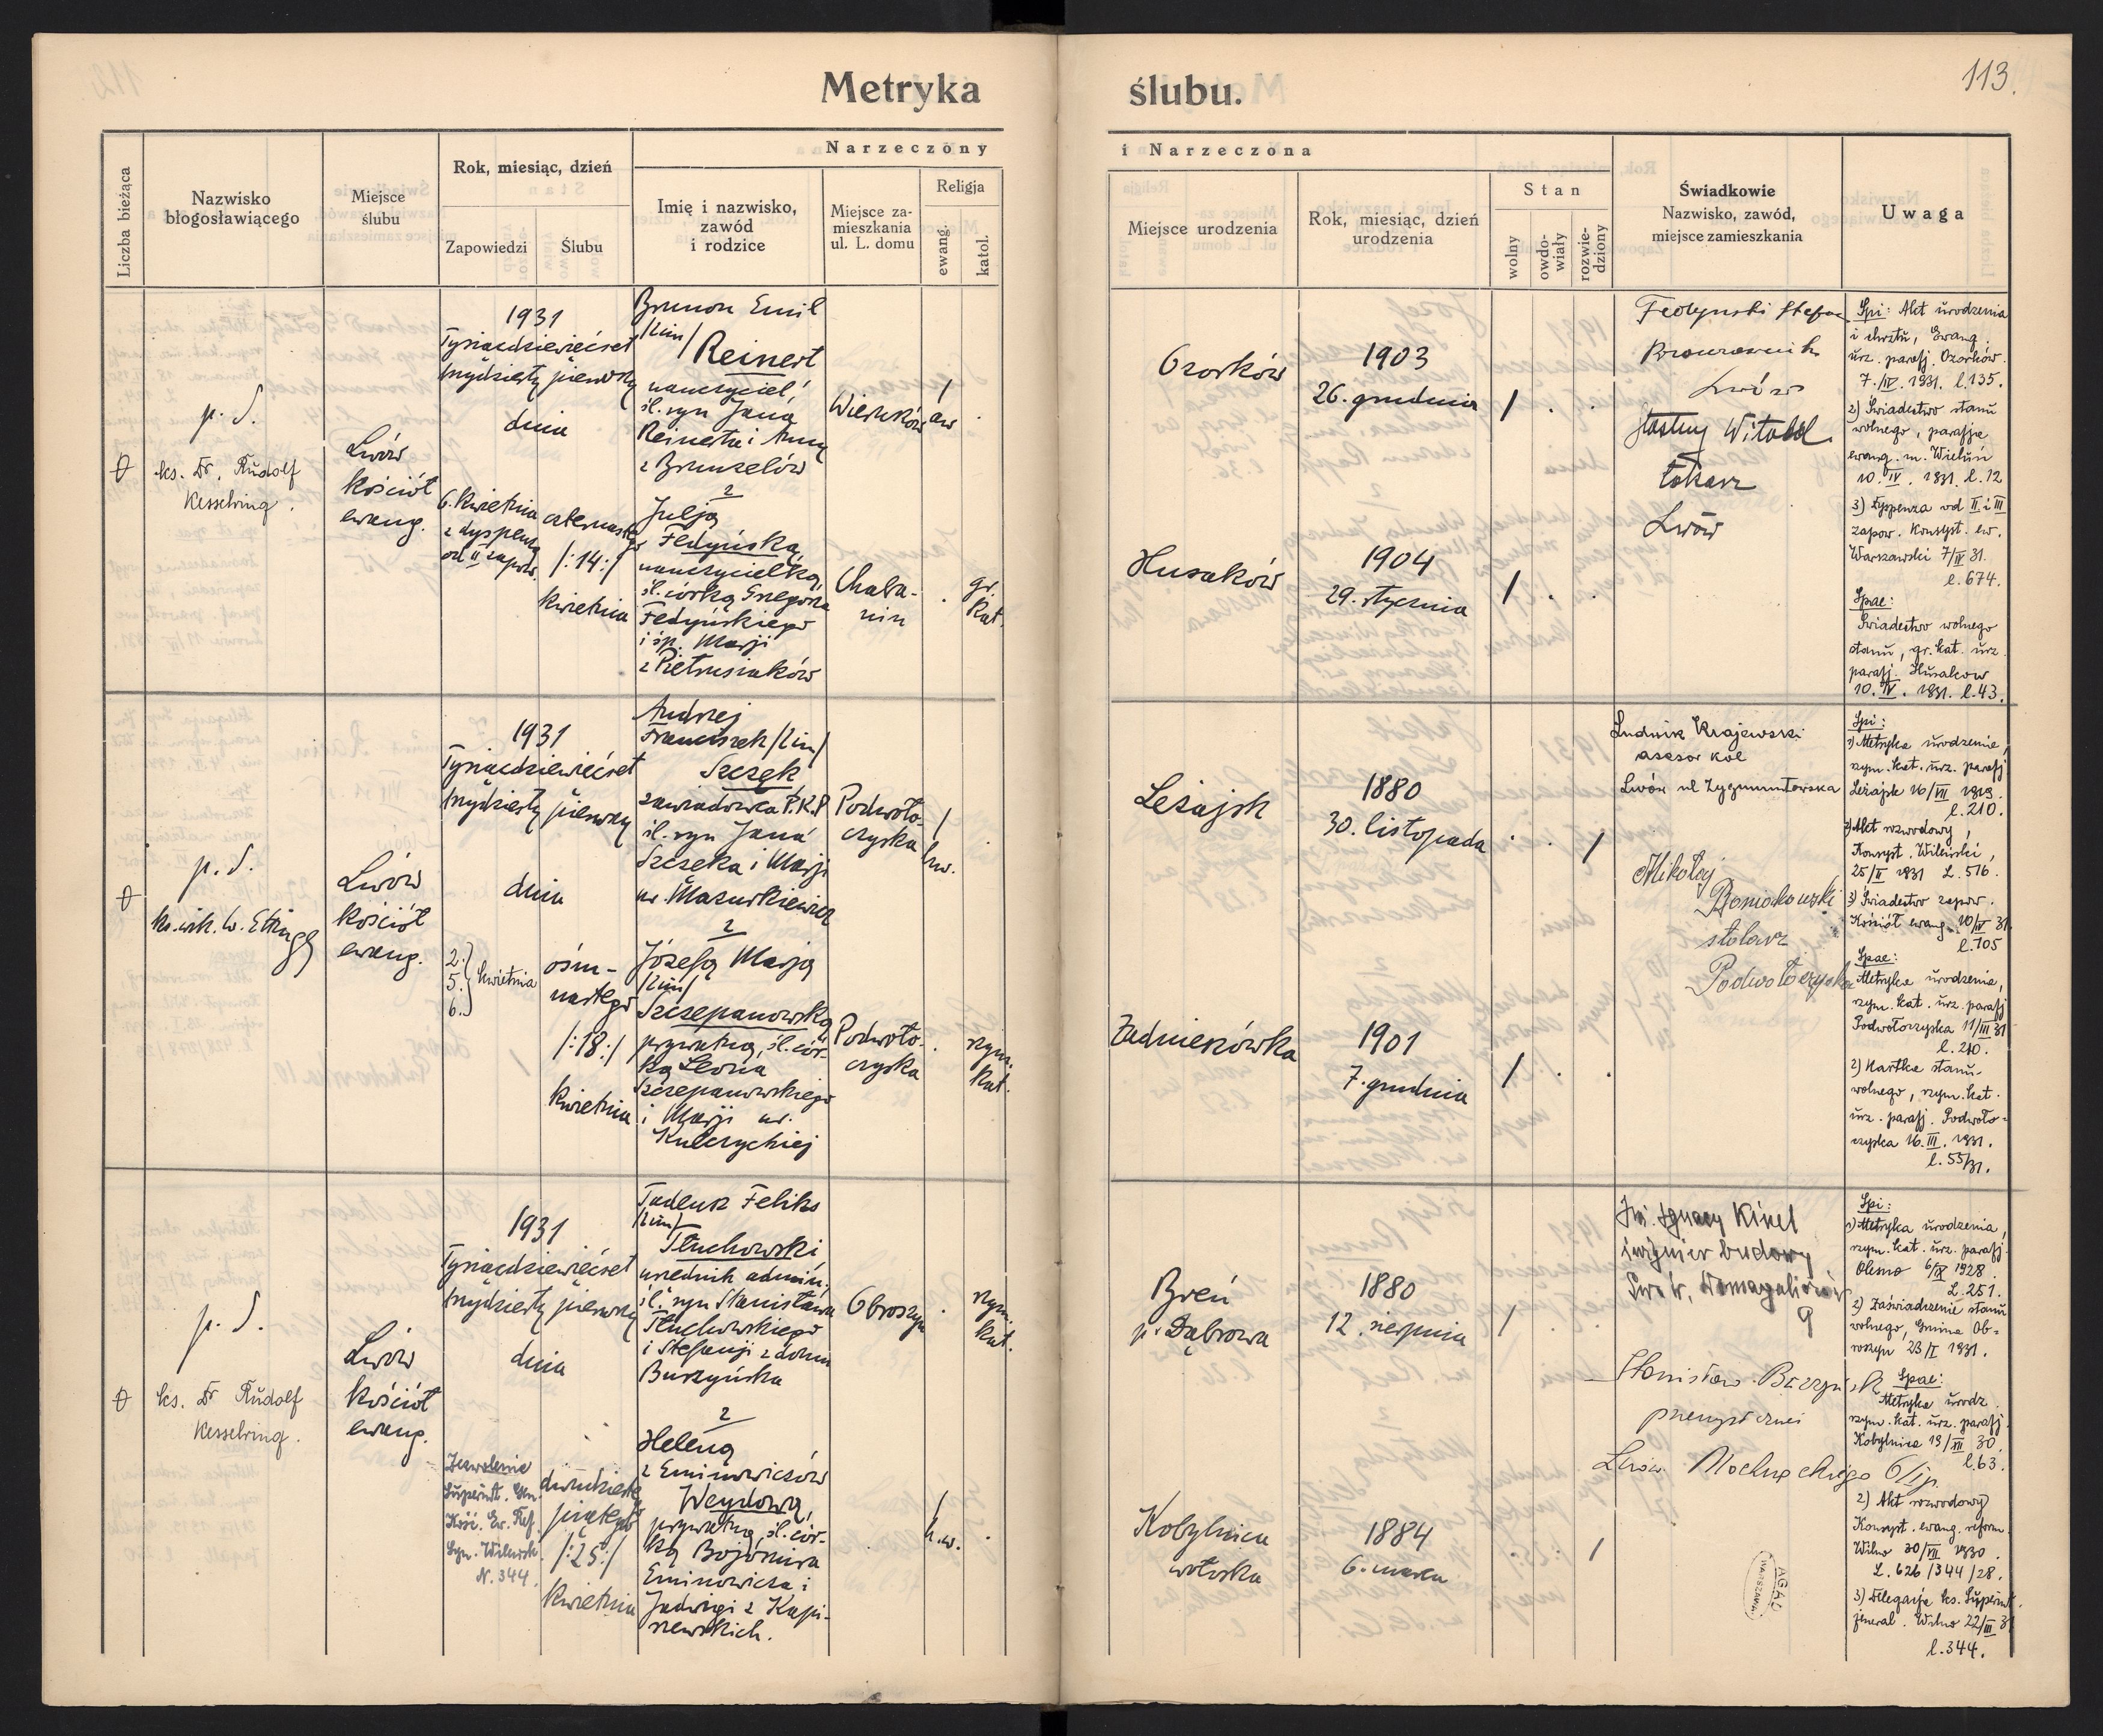 Metryka ślubu.
113.
Liczba bieżąca
Nazwisko
błogosławiącego
Miejsce
ślubu
Rok, miesiąc, dzień
Zapowiedzi
Ślubu
Narzeczony
Imię i nazwisko,
zawód
i rodzice
Miejsce za-
mieszkania
ul. L. domu
Religja
ewang.
katol.
i Narzeczona
Miejsce urodzenia
Rok, miesiąc, dzień
urodzenia
Stan
wolny
owdo-
wiały
rozwie-
dziony
Świadkowie
Nazwisko, zawód,
miejsce zamieszkania
Uwaga
p. S.
ks. Dr. Rudolf
Kesselring.
Lwów
kościół
ewang.
1931
Tysiącdziewięćset
trzydziesty pierwszy
dnia
6. kwietnia
z dyspenzą
czternastego
/:14:/
kwietnia
Brunon Emil
/2im/
Reinert
nauczyciel
śl. syn Jana
Reinerta i Anny
z Brunzelów
2
Julją
Fedyńską,
nauczycielką,
śl. córką Grzegorza
Fedyńskiego
i śp. Marji
z Pietrusiaków
ew
Chala-
nin
gr.
kat.
Ozorków
1903
26. grudnia
Husaków
1904
29. stycznia
Lwów
Witold
tokarz
Lwów
Spi: Akt urodzenia
i chrztu, Ewang.
urz. parafj. Ozorków.
7./IV. 1931. l.135.
2) Świadectwo stanu
wolnego, parafja
ewang. m. Wieluń
10. IV. 1931. l.12
3) Dyspenza od II i III
zapow. Konsyst. ew.
Warszawski 7/IV 31.
l. 674.
Spae:
Świadectwo wolnego
stanu, gr. kat. urz.
parafj. Husaków
10. IV. 1931. l.43.
p. S.
Lwów
kościół
ewang.
1931
Tysiącdziewięćset
trzydziesty pierwszy
dnia
2.
5. kwietnia
6.
ośm-
nastego
/:18:/
kwietnia
Andrzej
Franciszek /2im/
Szczęk
zawiadowca P.K.P
śl. syn Jana
Szczęka i Marji
ur. Mazurkiewicz
2
Józefą Marją
/2im/
Szczepanowską
prywatną, śl. cór-
ką Leona
Szczepanowskiego
i Marji ur.
Kulczyckiej
Podwoło-
czyska
Podwoło-
czyska
rzym.
kat.
Leżajsk
1880
30. listopada
Zadnieszówka
1901
7. grudnia
Ludwik Krajewski
asesor kol
Lwów ul Zygmuntowska
Mikołaj
stolarz
Podwołoczyska
Spi:
1) Metryka urodzenia,
rzym. kat. urz. parafj
Leżajsk 16/VII 1913.
l. 210.
2) Akt rozwodowy,
Konsyst. Wileński,
25/II 1931 L. 516.
3) Świadectwo zapow.
Kościół ewang. 10/IV 31
l. 105
Spae:
Metryka urodzenia,
rzym. kat. urz. parafj
Podwołoczyska 11/III 31
l. 210.
2) Kartka stanu
wolnego, rzym. kat.
urz. parafj. Podwoło-
czyska 16. III. 1931.
l. 55/31.
p. S.
ks. Dr Rudolf
Kesselring.
Lwów
kościół
ewang.
1931
Tysiącdziewięćset
trzydziesty pierwszy
dnia
Zezwolenie
Superint. Gen.
Kość. Ew. Ref.
Syn. Wileńsk.
N. 344.
dwudziestego
piątego
/:25:/
kwietnia
Tadeusz Feliks
/2im/
Tłuchowski
urzędnik admin.
śl. syn Stanisława
Tłuchowskiego
i Stefanji z domu
Burzyńska
2
Heleną
z Eminowiczów
Weydową,
prywatną, śl. cór-
ką Bojomira
Eminowicza i
Jadwigi z Kapi-
szewskich.
Obroszyn
rzym.
kat.
h.w.
Breń
p. Dąbrowa
1880
12. sierpnia
Kobylnica
wołoska
1884
6. marca
Inż. Ignacy Kinel
inżynier budowy
Lwów, Domagaliczów
9
Stanisław
Lwów Mochnackiego
Spi:
1) Metryka urodzenia,
rzym. kat. urz. parafj.
Olesno 6/IX 1928.
L. 251.
2) Zaświadczenie stanu
wolnego, Gmina Ob-
roszyn 23/I 1931.
Spae:
Metryka urodz.
rzym. kat. urz. parafj.
Kobylnica 19/XII 30.
l. 63.
2) Akt rozwodowy
Konsyst. ewang. reform.
Wilno 30/VII 1930.
L. 626/344/28.
3) Delegacja ks. Superint.
jeneral. Wilno 22/III 31
l. 344.
AGAD
WARSZAWA